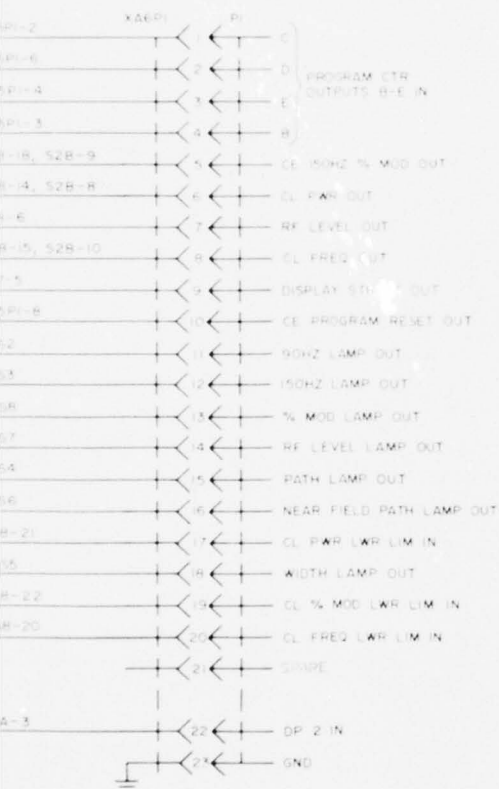 XA6P1 P1
6P1-2 1 C
6P1-6 2 D
PROGRAM CTR
OUTPUTS B-E IN
6P1-4 3 E
6P1-3 4 B
8-18, S2B-9 5 CE 150HZ % MOD OUT
8-14, S2B-8 6 CL PWR OUT
-6 7 RF LEVEL OUT
8-15, S2B-10 8 CL FREQ OUT
-5 9 DISPLAY OUT
6P1-8 10 CE PROGRAM RESET OUT
S2 11 90HZ LAMP OUT
S3 12 150HZ LAMP OUT
S8 13 % MOD LAMP OUT
S7 14 RF LEVEL LAMP OUT
S4 15 PATH LAMP OUT
S6 16 NEAR FIELD PATH LAMP OUT
8-21 17 CL PWR LWR LIM IN
S5 18 WIDTH LAMP OUT
8-22 19 CL % MOD LWR LIM IN
8-20 20 CL FREQ LWR LIM IN
21 SPARE
A-3 22 DP 2 IN
23 GND